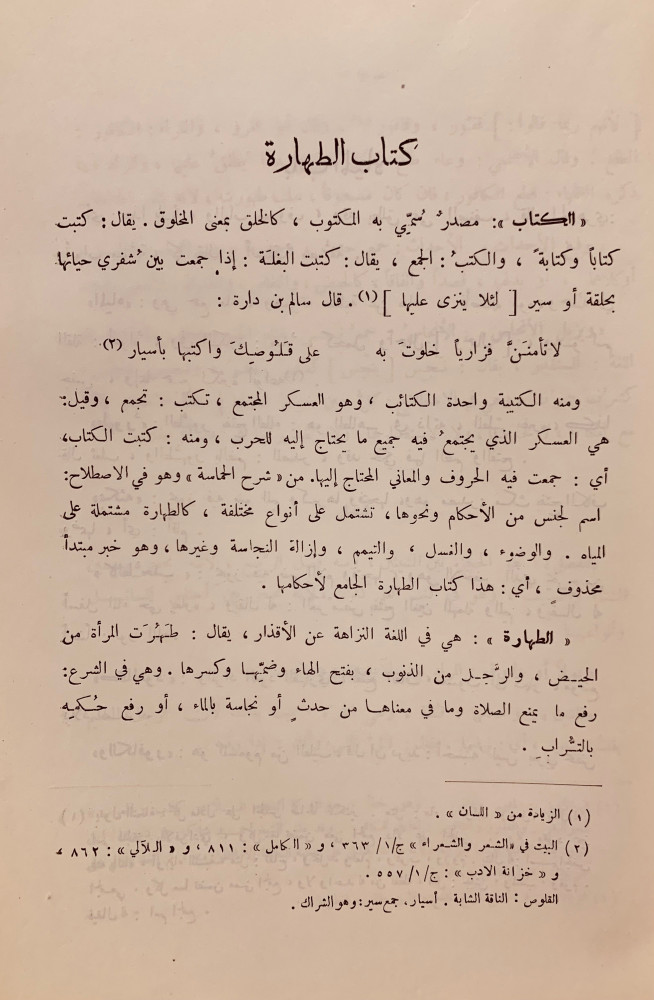 كتاب الطهارة
« الكتاب »: مصدرٌ سُمِّي به المكتوب ، كالخلق بمعنى المخلوق . يقال : كتبت
كتاباً وكتابةً ، والكتبُ : الجمع ، يقال : كتبت البغلة : إذا جمعت بين شُفري حيائها
بحلقة أو سير [ لئلا ينزى عليها ](١) . قال سالم بن دارة :
لاتأمنَنَّ فزارياً خلوتَ به على قَلُوصِكَ واكتبها بأسيار (٢).
ومنه الكتيبة واحدة الكتائب ، وهو العسكر المجتمع ، تكتب : تجمع ، وقيل:
هي العسكر الذي يجتمعُ فيه جميع ما يحتاج إليه للحرب ، ومنه : كتبت الكتاب،
أي : جمعت فيه الحروف والمعاني المحتاج إليها. من « شرح الحماسة » وهو في الاصطلاح:
اسم لجنس من الأحكام ونحوها، تشتمل على أنواع مختلفة ، كالطهارة مشتملة على
المياه . والوضوء ، والغسل ، والتيمم ، وإزالة النجاسة وغيرها، وهو خبر مبتدأ
محذوفٍ ، أي : هذا كتاب الطهارة الجامع لأحكامها .
« الطهارة » : هي في اللغة النزاهة عن الأقذار ، يقال : طَهَُرَت المرأة من
الحيـض ، والرَّجـل من الذنوب ، بفتح الهاء وضمِّهـا وكسرها . وهي في الشرع:
رفع ما يمنع الصلاة وما في معناهـا من حدثٍ أو نجاسة بالماء ، أو رفع حُـكمِـه
بالتُّرابِ .
(١) الزيادة من « اللسان » .
(٢) البيت في « الشعر والشعراء » ج/١/ ٣٦٣ ، و « الكامل » : ٨١١ ، و « اللآلي » : ٨٦٢ ،
و « خزانة الادب » : ج/١/ ٥٥٧ .
القلوص : الناقة الشابة . أسيار، جمع سير: وهو الشراك .